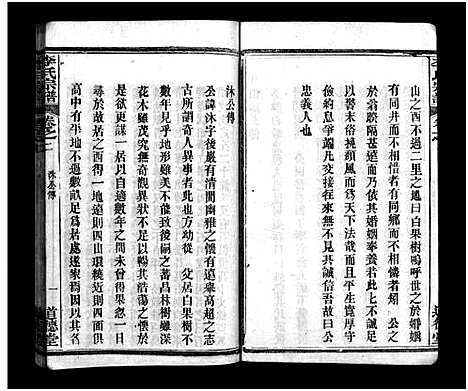 李氏宗譜
山之西不過二里之遙曰白果樹嗚呼世之於婚姻
而苦同不相惜者有同鄉而不相憐者頗　公之
於翁睽隔甚遠而乃依其婚姻奉養若此不誠足
以警末俗挽頹風而為天下法哉而且生平寬厚守
儉約息爭端凡交接往來無不見其誠信吾故曰公
忠義人也
道德堂
李氏宗譜
沐公傳
沐公傳
公諱沐字從嚴有清閒幽雅之懷有逍遙高超之志
古所謂奇人異事者此也　父居白果樹
數年見乎地形雖美不能致後嗣之蕃昌林樹雖深
花木雖茂究無奇觀異狀不足以極其浩蕩之懷於
是欲更謀一居以自適數年之間未曾得果忽一日
尋於故居之西得一地遠則四山環繞近則
高中有平地不過數畝足為居處遂家焉因以其名
一
道德堂